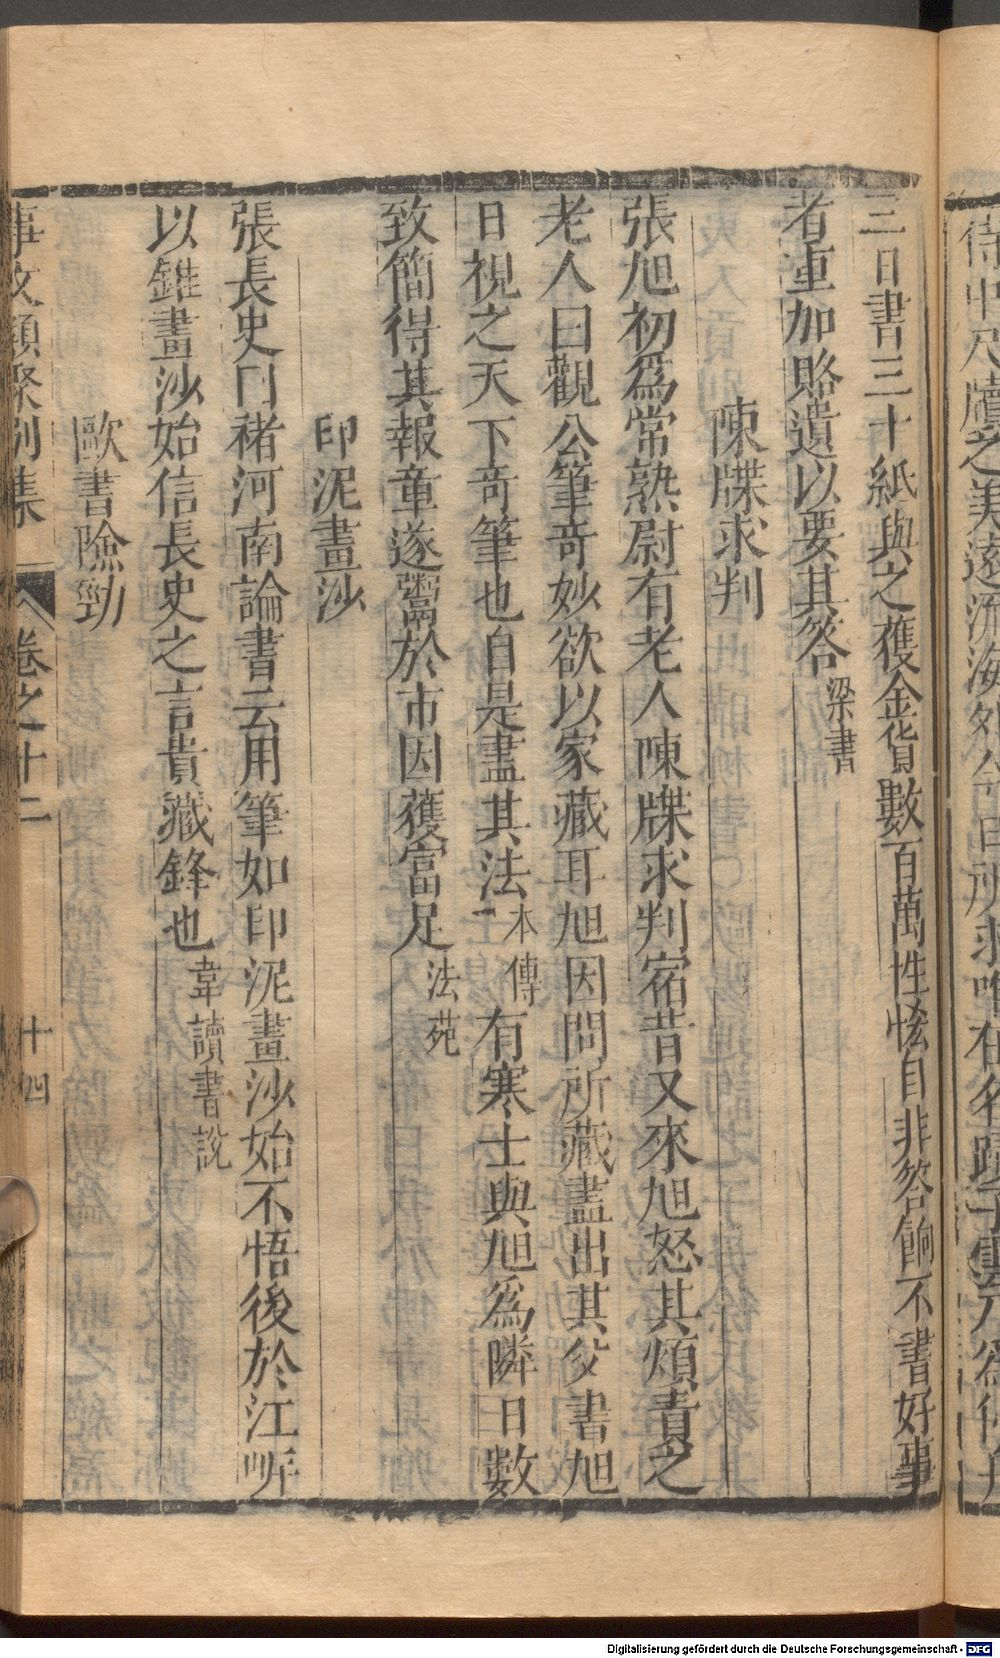 三日書三十紙與之獲金貨數百萬性恡自非答餉不書好事
者重加賂遺以要其答梁書
陳牒求判
張旭初爲常熟尉有老人陳牒求判宿昔又來旭怒其煩責之
老人曰觀公筆竒妙欲以家藏耳旭因問所藏盡出其父書旭
日視之天下竒筆也自是盡其法本傳一有寒士與旭爲隣日數
致簡得其報章遂鬻於市因獲富足法苑
印泥畫沙
張長史曰褚河南論書云用筆如印泥畫沙始不悟後於江岸
以錐畫沙始信長史之言貴藏鋒也韋讀書說
歐書險勁
事文類聚別集 卷之十二 十四
侍中尺牘之美遠流海外今日所求唯在名跡子雲乃爲停
Digitalisierung gefördert durch die Deutsche Forschungsgemeinschaft - DFG